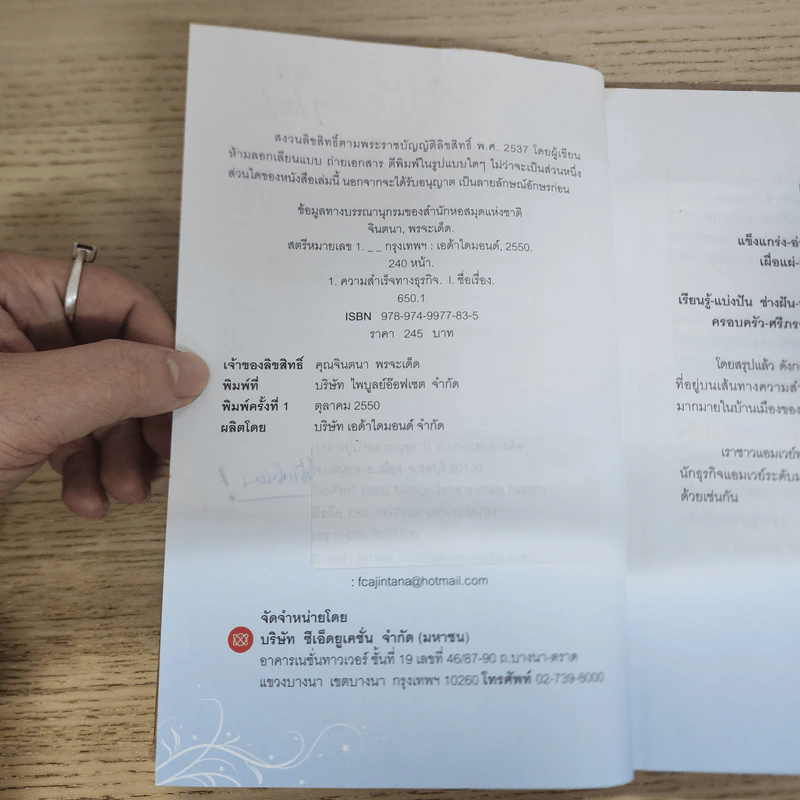 สงวนลิขสิทธิ์ตามพระราชบัญญัติลิขสิทธิ์ พ.ศ. 2537 โดยผู้เขียน
ห้ามลอกเลียนแบบ ถ่ายเอกสาร ตีพิมพ์ในรูปแบบใดๆ ไม่ว่าจะเป็นส่วนหนึ่ง
ส่วนใดของหนังสือเล่มนี้ นอกจากจะได้รับอนุญาต เป็นลายลักษณ์อักษรก่อน
ข้อมูลทางบรรณานุกรมของสำนักหอสมุดแห่งชาติ
จินตนา, พรจะเด็ด.
สตรีหมายเลข 1. _ _ กรุงเทพฯ : เอด้าไดมอนด์, 2550.
240 หน้า.
1. ความสำเร็จทางธุรกิจ. I. ชื่อเรื่อง.
650.1
ISBN 978-974-9977-83-5
ราคา 245 บาท
เจ้าของลิขสิทธิ์ คุณจินตนา พรจะเด็ด
พิมพ์ที่ บริษัท ไพบูลย์อ๊อฟเซต จำกัด
พิมพ์ครั้งที่ 1 ตุลาคม 2550
ผลิตโดย บริษัท เอด้าไดมอนด์ จำกัด
: fcajintana@hotmail.com
จัดจำหน่ายโดย
บริษัท ซีเอ็ดยูเคชั่น จำกัด (มหาชน)
อาคารเนชั่นทาวเวอร์ ชั้นที่ 19 เลขที่ 46/87-90 ถ.บางนา-ตราด
แขวงบางนา เขตบางนา กรุงเทพฯ 10260 โทรศัพท์ 02-739-8000
แข็งแกร่ง-อ่
เผื่อแผ่-
เรียนรู้-แบ่งปัน ช่างฝัน-
ครอบครัว-ศรีภร
โดยสรุปแล้ว ดังก
ที่อยู่บนเส้นทางความสำ
มากมายในบ้านเมืองของ
เราชาวแอมเวย์ท
นักธุรกิจแอมเวย์ระดับม
ด้วยเช่นกัน